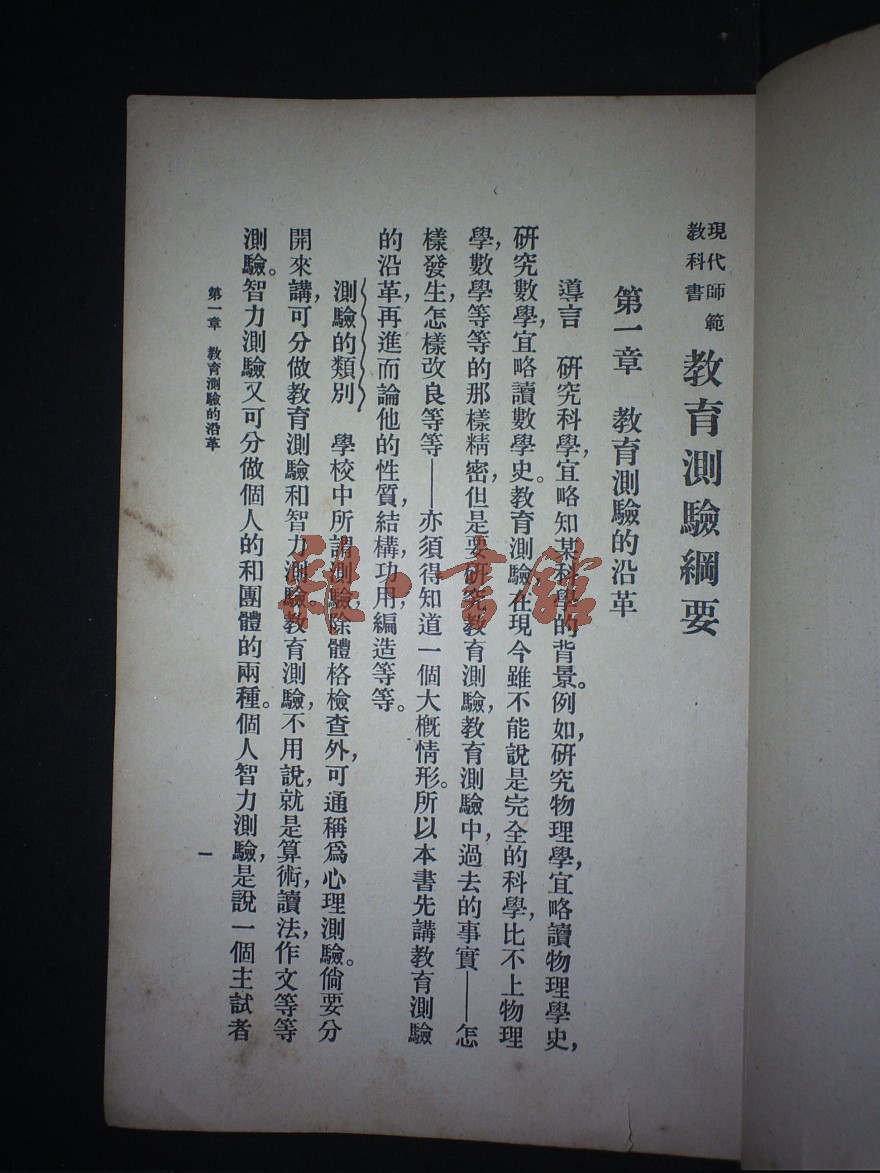 現代師範
教科書
教育測驗綱要
第一章 教育測驗的沿革
導言 研究科學,宜略知某科學的背景。例如,研究物理學,宜略讀物理學史,
研究數學,宜略讀數學史。教育測驗,在現今雖不能說是完全的科學,比不上物理
學,數學等等的那樣精密,但是要研究教育測驗,教育測驗中,過去的事實——怎
樣發生,怎樣改良等等——亦須得知道一個大槪情形。所以本書先講教育測驗
的沿革,再進而論他的性質,結構,功用,編造等等。
測驗的類別 學校中所謂測驗,除體格檢查外,可通稱爲心理測驗。倘要分
開來講,可分做教育測驗和智力測驗。教育測驗,不用說,就是算術,讀法,作文等等
測驗。智力測驗又可分做個人的和團體的兩種。個人智力測驗,是說一個主試者
第一章 教育測驗的沿革
一
雜·書館